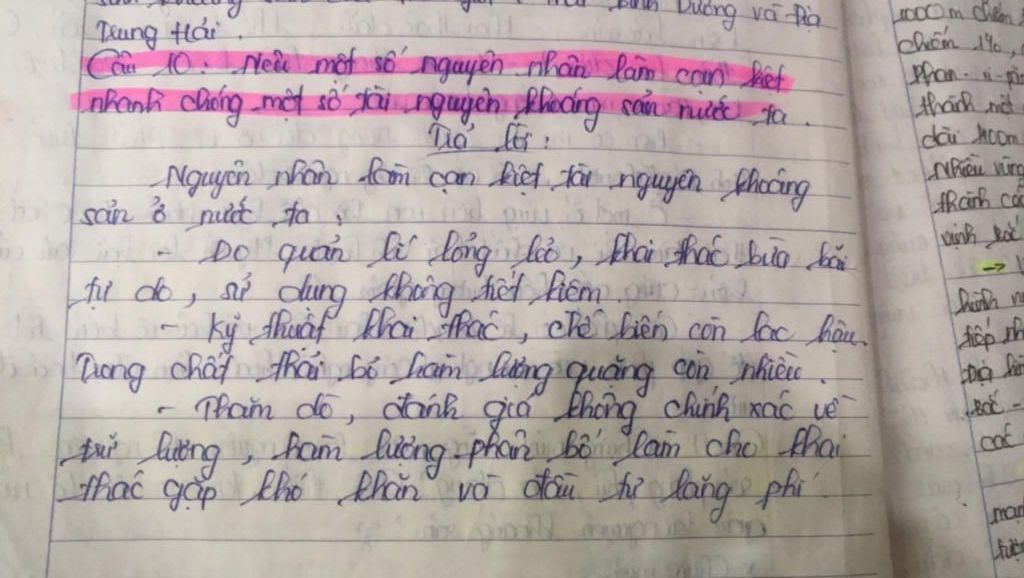 Dương và Địa
Trung Hải.
Câu 10: Nêu một số nguyên nhân làm cạn kiệt
nhanh chóng một số tài nguyên khoáng sản nước ta.
Trả lời:
Nguyên nhân làm cạn kiệt tài nguyên khoáng
sản ở nước ta:
- Do quản lí lỏng lẻo, khai thác bừa bãi
tự do, sử dụng không tiết kiệm.
- Kỹ thuật khai thác, chế biến còn lạc hậu.
Trong chất thải bỏ hàm lượng quặng còn nhiều.
- Thăm dò, đánh giá không chính xác về
trữ lượng, hàm lượng, phân bố làm cho khai
thác gặp khó khăn và đầu tư lãng phí.
chiếm 1%
thành một
Nhiều vùng